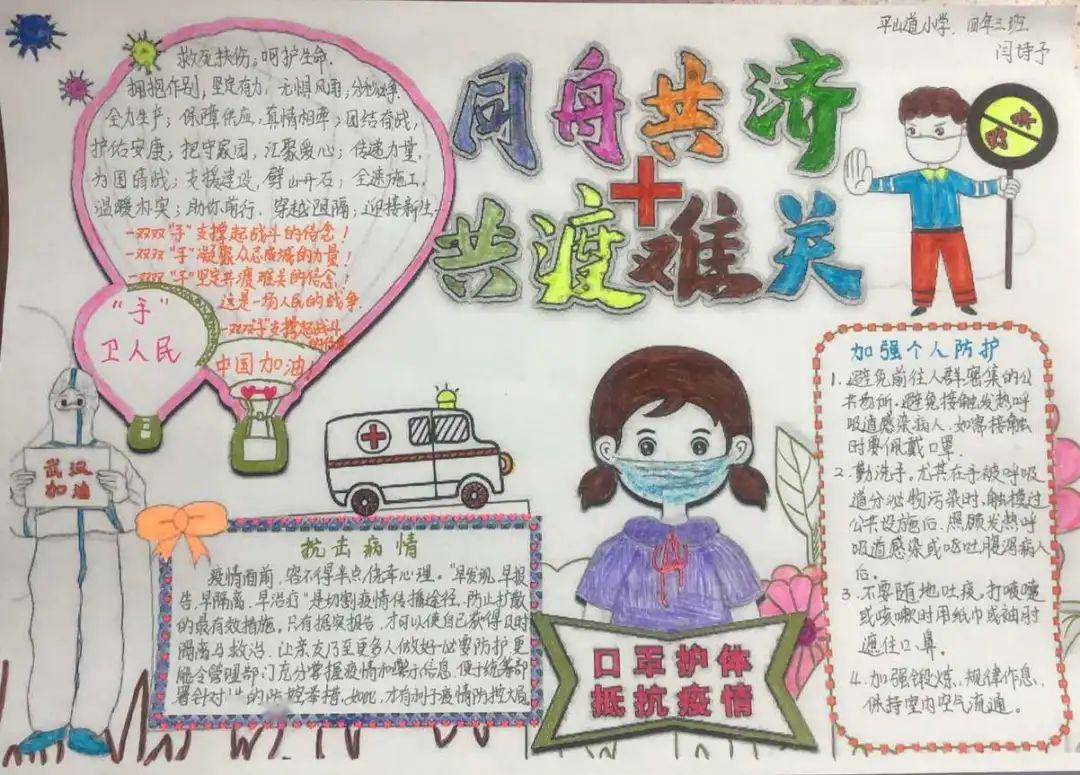 平山道小学. 四年三班
闫诗予
同舟共济
共渡难关
救死扶伤; 呵护生命.
拥抱作别, 坚定有力, 无惧风雨; 分秒必争.
全力生产; 保障供应, 真情相牵; 团结奋战,
护佑安康; 把守家园, 汇聚爱心; 传递力量,
为国请战; 支援建设, 劈山开石; 全速施工,
温暖朴实; 助你前行. 穿越阻隔; 迎接新生.
一双双“手”支撑起战斗的信念!
一双双“手”凝聚众志成城的力量!
一双双“手”坚定共渡难关的信念!
这是一场人民的战争.
一双双“手”支撑起战斗
的信念
“手”
卫人民
中国加油!
武汉
加油
抗击病情
疫情面前, 容不得半点侥幸心理。“早发现, 早报
告, 早隔离, 早治疗”是切割疫情传播途径, 防止扩散
的最有效措施。只有据实报告, 才可以使自己获得及时
隔离与救治, 让亲友乃至更多人做好必要防护, 更
能令管理部门充分掌握疫情和警示信息, 便于统筹部
署针对性的防控举措, 如此, 才有利于疫情防控大局
口罩护体
抵抗疫情
加强个人防护
1. 避免前往人群密集的公
共场所. 避免接触发热呼
吸道感染病人, 如需接触
时要佩戴口罩.
2. 勤洗手。尤其在手被呼吸
道分泌物污染时、触摸过
公共设施后、照顾发热呼
吸道感染或呕吐腹泻病人
后。
3. 不要随地吐痰, 打喷嚏
或咳嗽时用纸巾或袖肘
遮住口、鼻。
4. 加强锻炼, 规律作息,
保持室内空气流通。